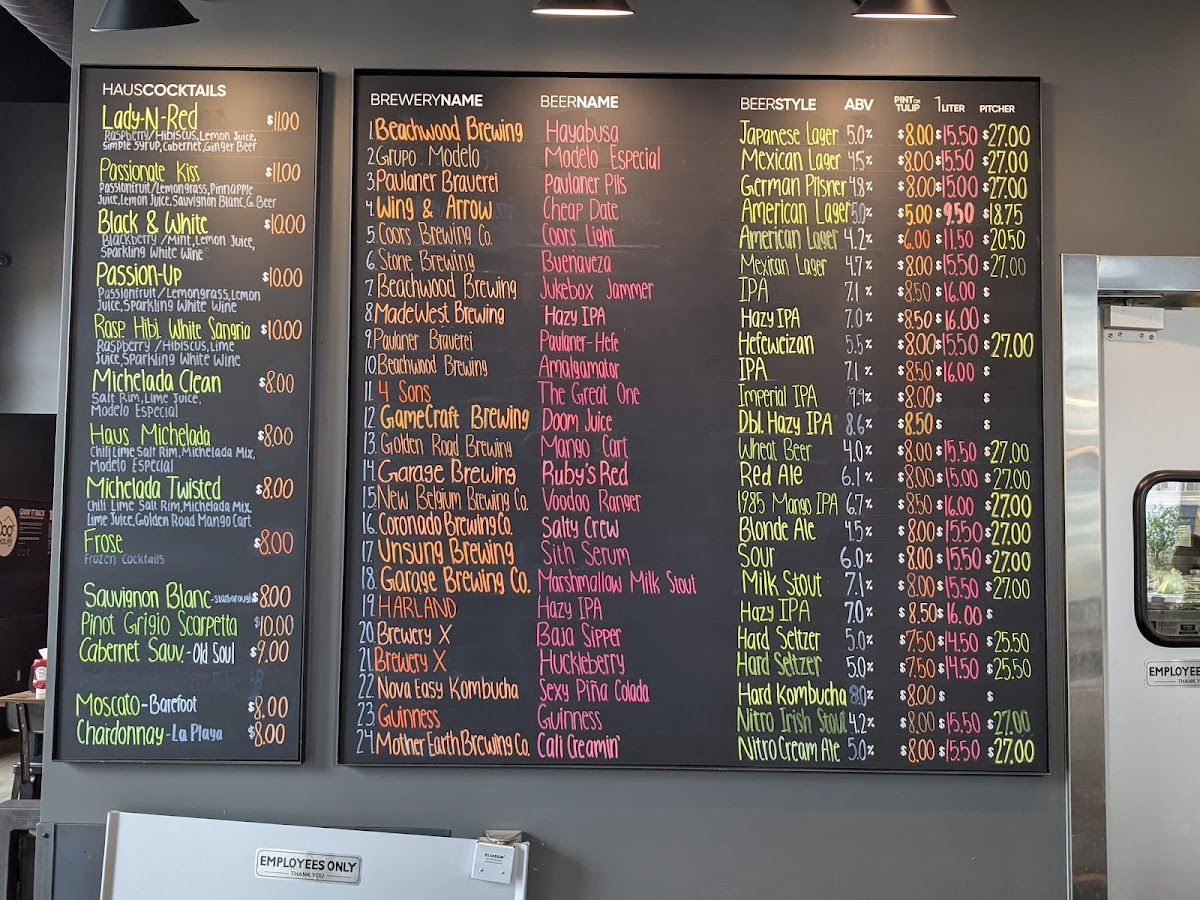 HAUSCOCKTAILS
Lady-N-Red $11.00
Raspberry/Hibiscus, Lemon Juice,
Simple Syrup, Cabernet, Ginger Beer
Passionate Kiss $11.00
Passionfruit/Lemongrass, Pinnapple
Juice, Lemon Juice, Sauvignon Blanc, G. Beer
Black & White $10.00
Blackberry/Mint, Lemon Juice,
Sparkling White Wine
Passion-Up $10.00
Passionfruit/Lemongrass, Lemon
Juice, Sparkling White Wine
Rasp. Hibi. White Sangria $10.00
Raspberry/Hibiscus, Lime
Juice, Sparkling White Wine
Michelada Clean $8.00
Salt Rim, Lime Juice,
Modelo Especial
Haus Michelada $8.00
Chili Lime Salt Rim, Michelada Mix,
Modelo Especial
Michelada Twisted $8.00
Chili Lime Salt Rim, Michelada Mix,
Lime Juice, Golden Road Mango Cart
Frose $8.00
Frozen Cocktails
Sauvignon Blanc-Starborough $8.00
Pinot Grigio Scarpetta $10.00
Cabernet Sauv.-Old Soul $9.00
Moscato-Barefoot $8.00
Chardonnay-La Playa $8.00
BREWERYNAME BEERNAME BEERSTYLE ABV PINT OR TULIP 1 LITER PITCHER
1. Beachwood Brewing Hayabusa Japanese Lager 5.0% $8.00 $15.50 $27.00
2. Grupo Modelo Modelo Especial Mexican Lager 4.5% $8.00 $15.50 $27.00
3. Paulaner Brauerei Paulaner Pils German Pilsner 4.8% $8.00 $15.00 $27.00
4. Wing & Arrow Cheap Date American Lager 5.0% $5.00 $9.50 $18.75
5. Coors Brewing Co. Coors Light American Lager 4.2% $6.00 $11.50 $20.50
6. Stone Brewing Buenaveza Mexican Lager 4.7% $8.00 $15.50 $27.00
7. Beachwood Brewing Jukebox Jammer IPA 7.1% $8.50 $16.00 $
8. MadeWest Brewing Hazy IPA Hazy IPA 7.0% $8.50 $16.00 $
9. Paulaner Brauerei Paulaner-Hefe Hefeweizan 5.5% $8.00 $15.50 $27.00
10. Beachwood Brewing Amalgamator IPA 7.1% $8.50 $16.00 $
11. 4 Sons The Great One Imperial IPA 9.9% $8.00 $ $
12. GameCraft Brewing Doom Juice Dbl. Hazy IPA 8.6% $8.50 $ $
13. Golden Road Brewing Mango Cart Wheat Beer 4.0% $8.00 $15.50 $27.00
14. Garage Brewing Ruby's Red Red Ale 6.1% $8.00 $15.00 $27.00
15. New Belgium Brewing Co. Voodoo Ranger 1985 Mango IPA 6.7% $8.50 $16.00 $27.00
16. Coronado Brewing Co. Salty Crew Blonde Ale 4.5% $8.00 $15.50 $27.00
17. Unsung Brewing Sith Serum Sour 6.0% $8.00 $15.50 $27.00
18. Garage Brewing Co. Marshmallow Milk Stout Milk Stout 7.1% $8.00 $15.50 $27.00
19. HARLAND Hazy IPA Hazy IPA 7.0% $8.50 $16.00 $
20. Brewery X Baja Sipper Hard Seltzer 5.0% $7.50 $14.50 $25.50
21. Brewery X Huckleberry Hard Seltzer 5.0% $7.50 $14.50 $25.50
22. Nova Easy Kombucha Sexy Piña Colada Hard Kombucha 8.0% $8.00 $ $
23. Guinness Guinness Nitro Irish Stout 4.2% $8.00 $15.50 $27.00
24. Mother Earth Brewing Co. Cali Creamin' Nitro Cream Ale 5.0% $8.00 $15.50 $27.00
EMPLOYEES ONLY
THANK YOU
EMPLOYEE
THANK Y